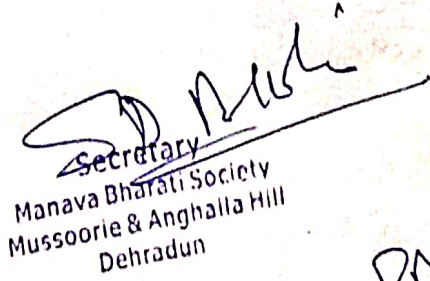 Secretary
Manava Bharati Society
Mussoorie & Anghaila Hill
Dehradun